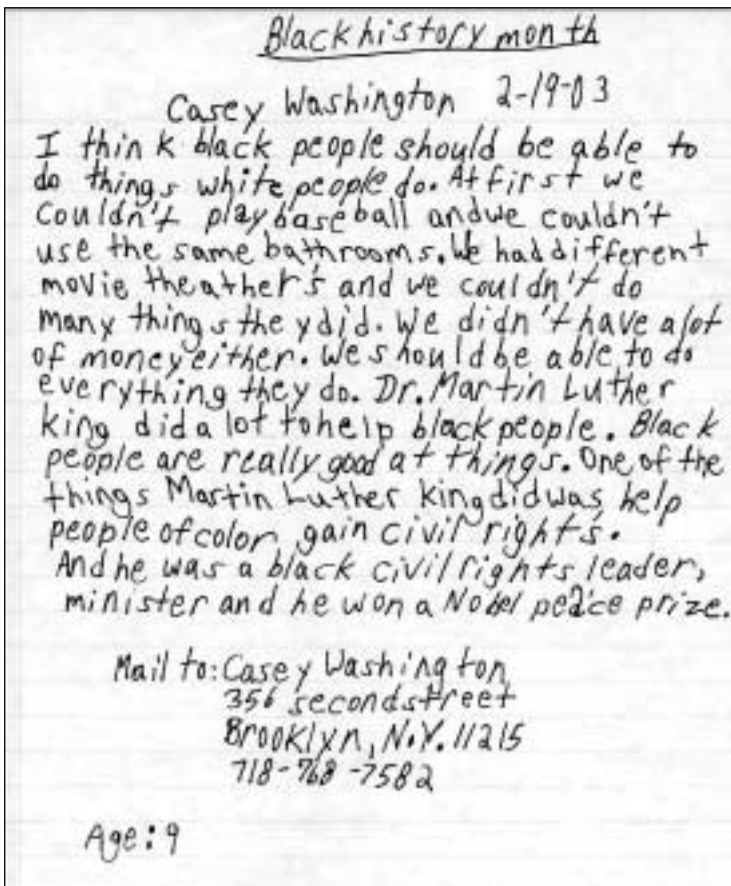 Black history month
Casey Washington 2-19-03
I think black people should be able to
do things white people do. At first we
Couldn't play baseball and we couldn't
use the same bathrooms. We had different
movie theather's and we couldn't do
many things they did. We didn't have a lot
of money either. We should be able to do
everything they do. Dr. Martin Luther
King did a lot to help black people. Black
people are really good at things. One of the
things Martin Luther King did was help
people of color gain civil rights.
And he was a black civil rights leader,
minister and he won a Nobel peace prize.
Mail to: Casey Washington
356 second street
Brooklyn, N.Y. 11215
718-768-7582
Age: 9